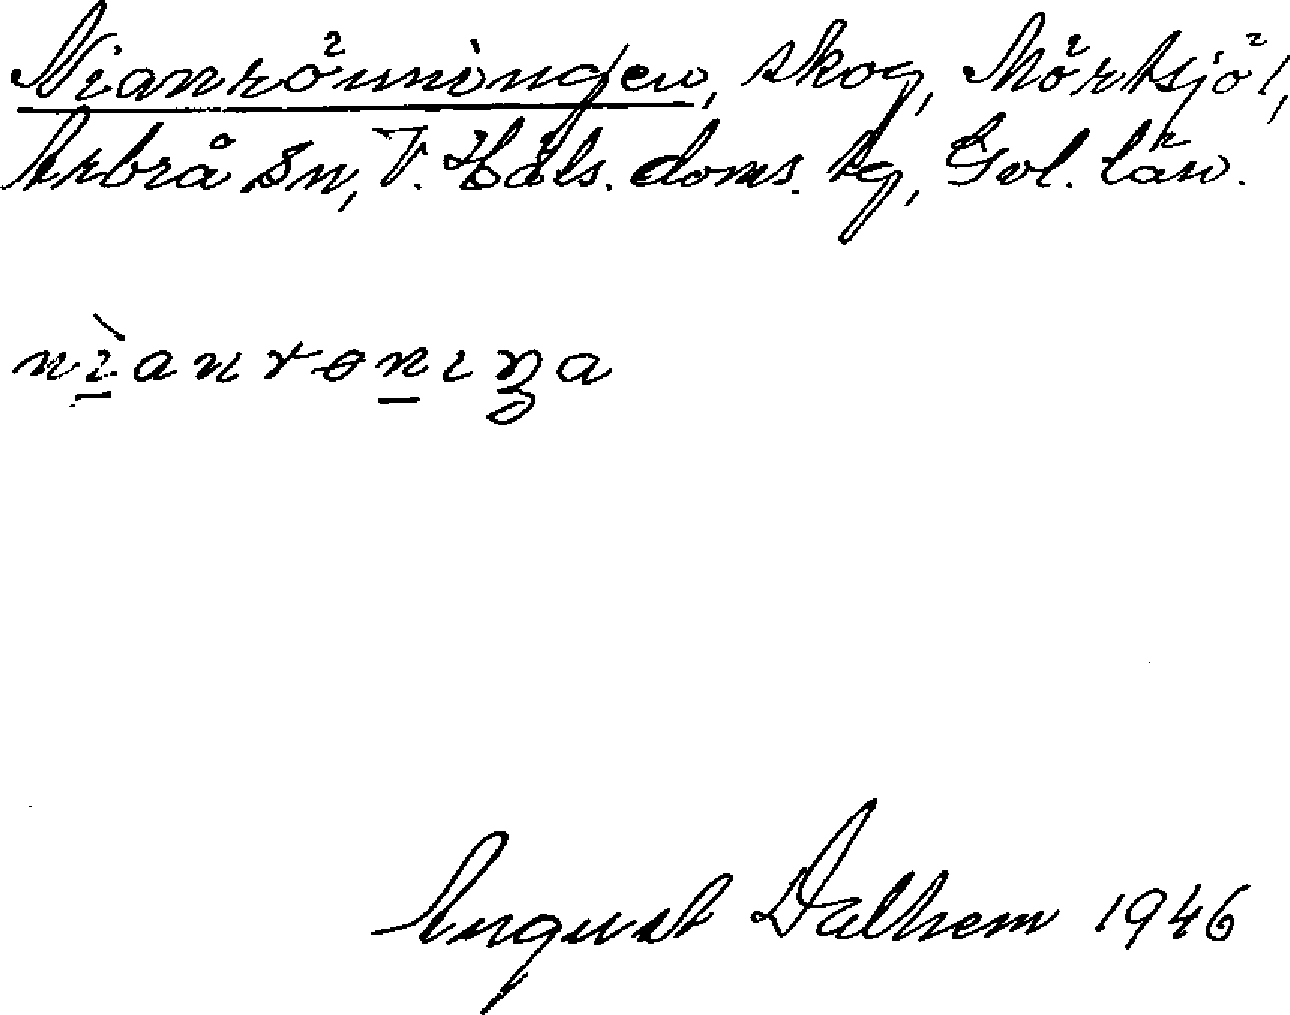 Nianrönningen, skog, Mörtsjö 1,
Arbrå sn, V. Häls. doms. tg, Gvl. län.
nìanrɵnıŋa
August Dalhem 1946